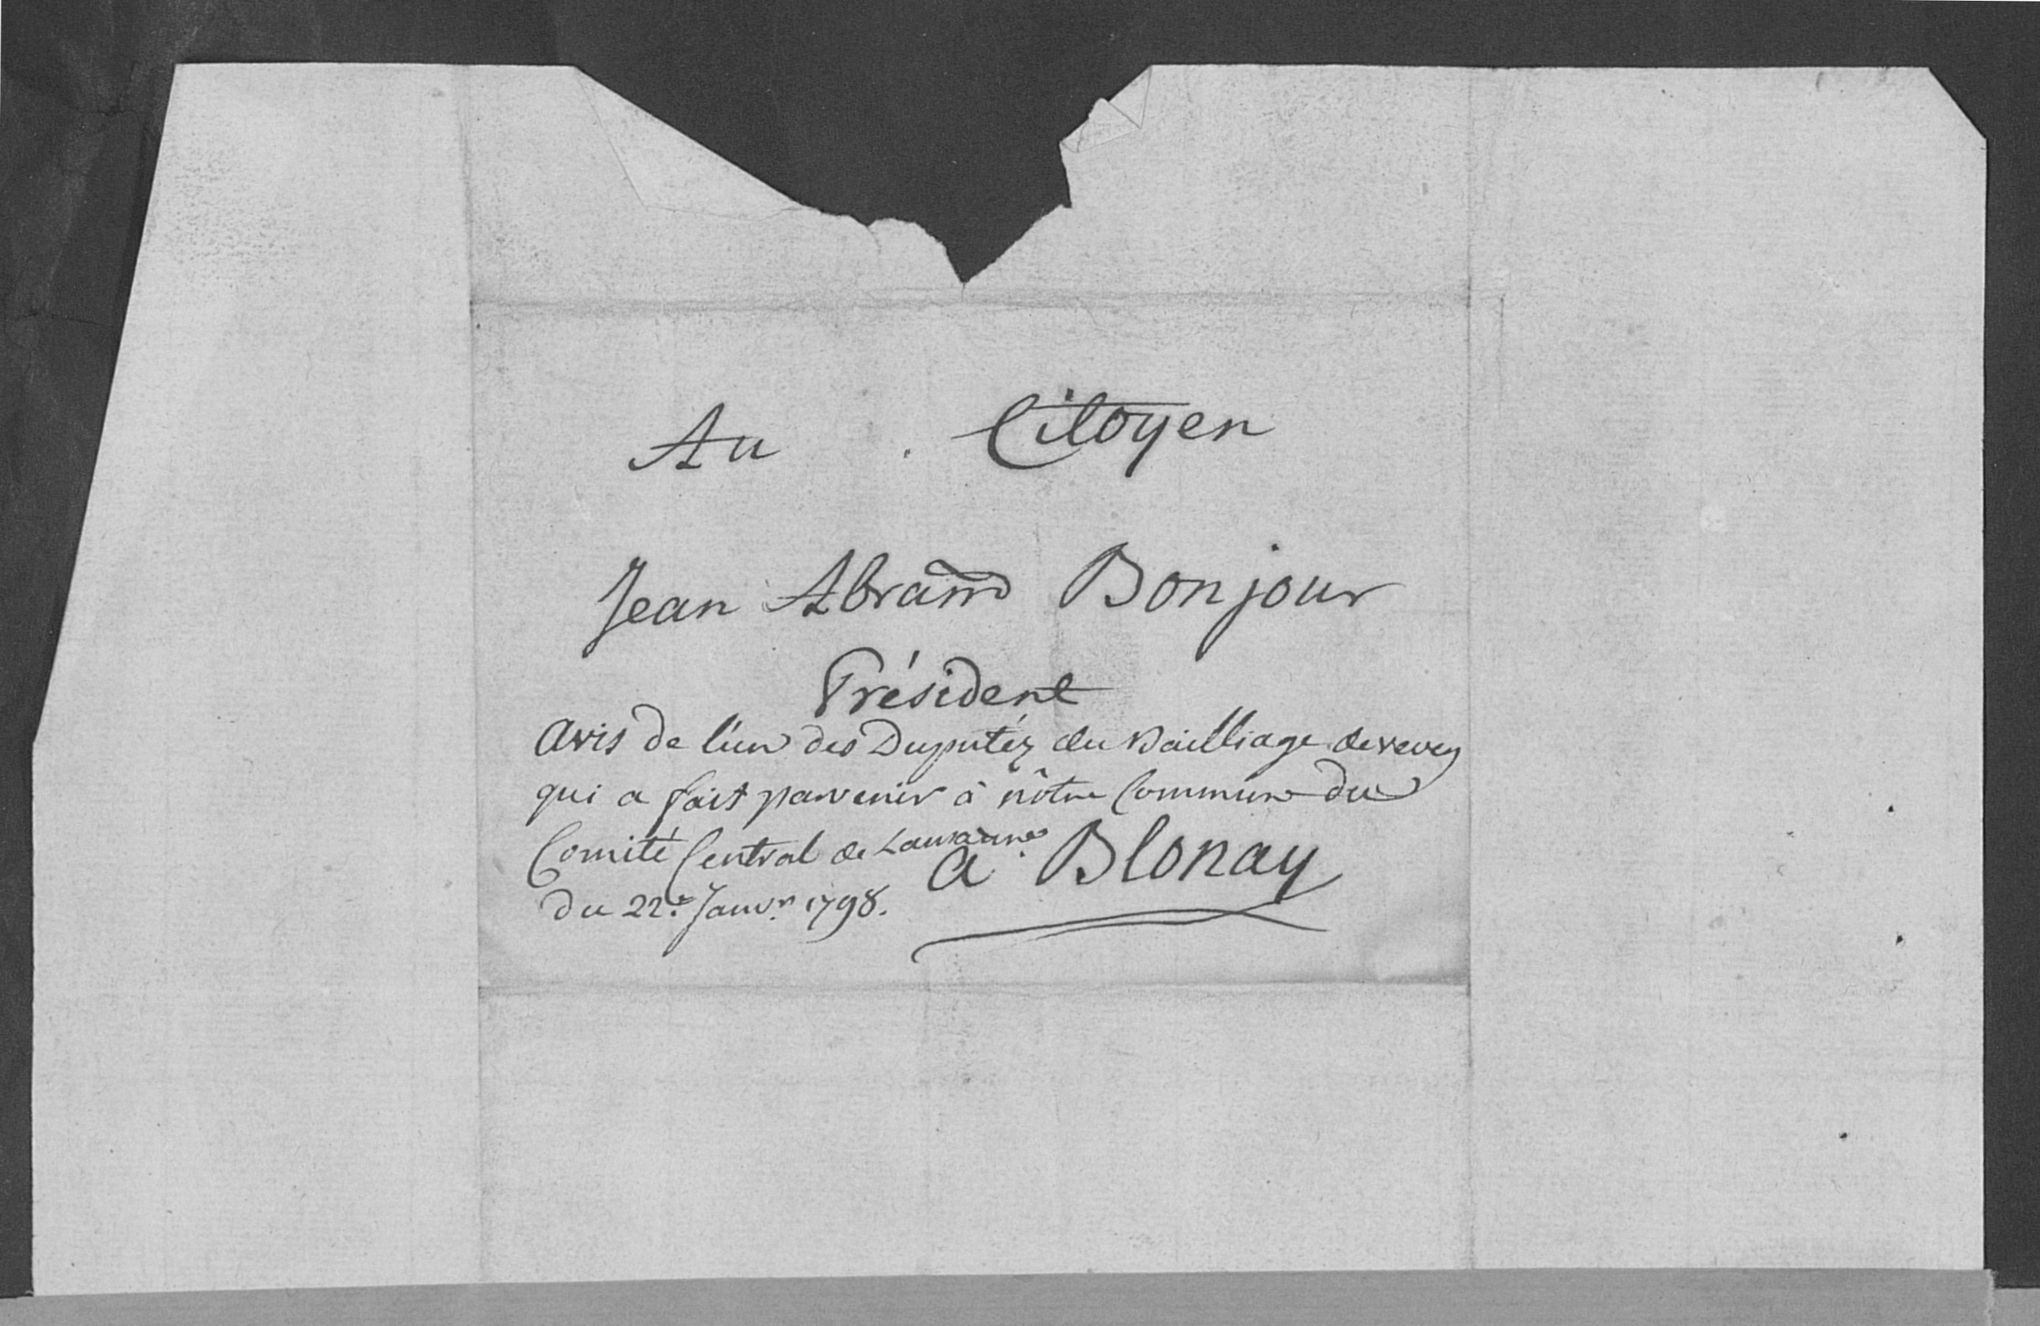 Au Citoyen
Jean Abram Bonjour
Président
Avis de l'un des Duputéz du Bailliage de vevey
qui a fait parvenir à nôtre Commune du
Comité Central de Lausanne
a Blonay
du 22.e Janv.r 1798.